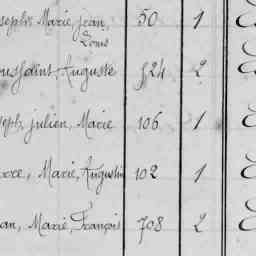 seph Marie, Jean, 50 1
Louis
oussaint, Auguste 524 2
seph, julien, Marie 106 1
erre, Marie, Augustin 102 1
an, Marie, François 708 2